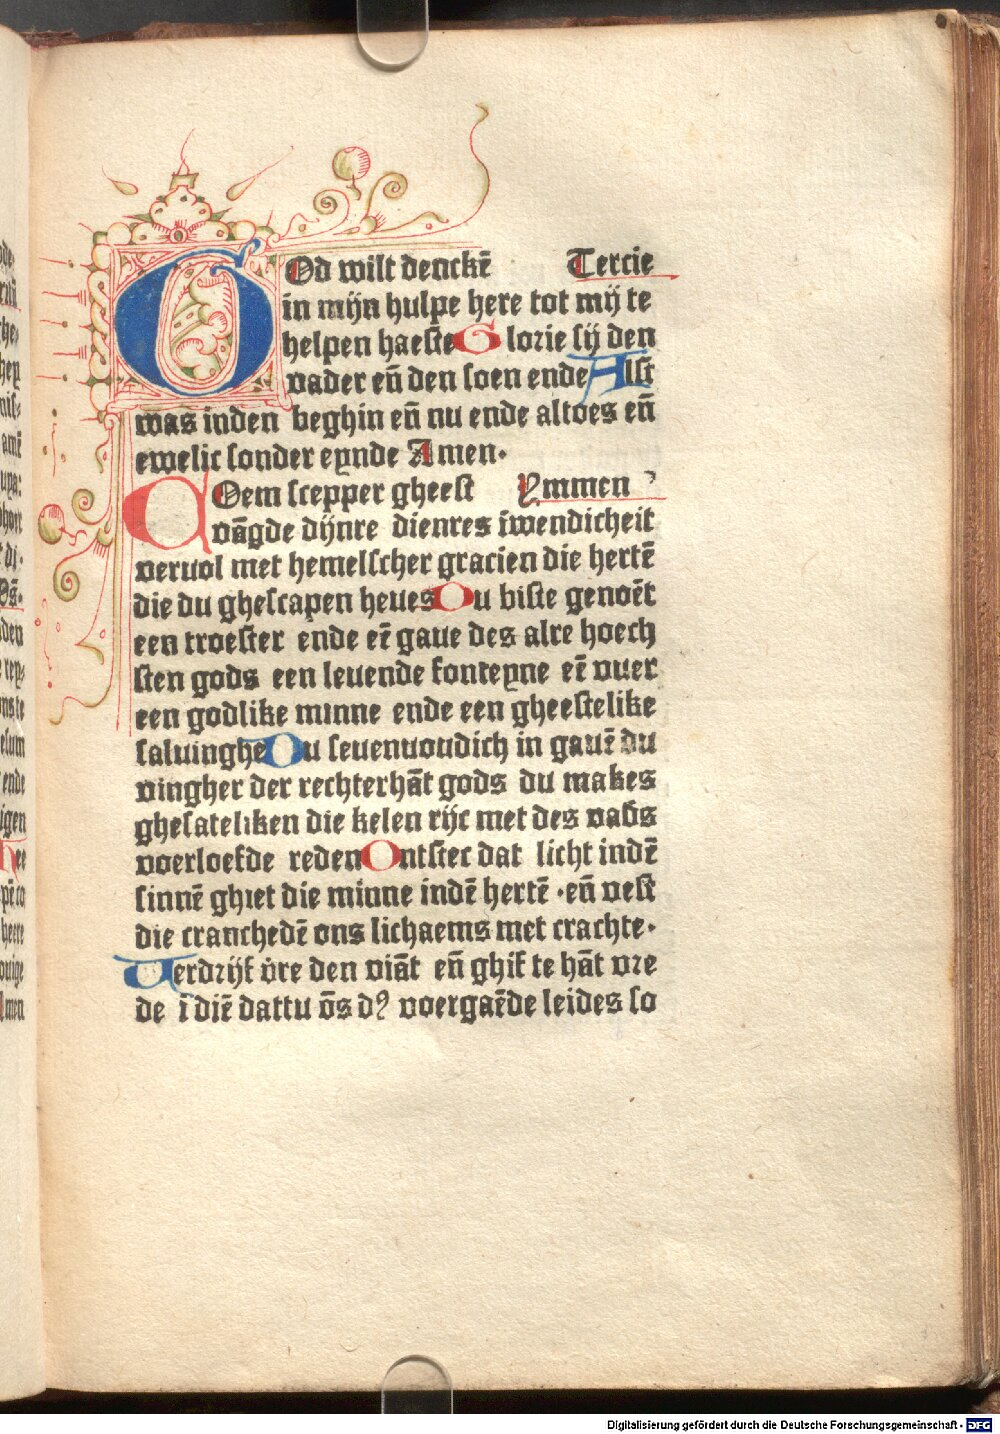 GOd wilt denckē Tercie
in mijn hulpe here tot mij te
helpen haeste Glorie sij den
vader eñ den soen ende Alst
was inden beghin eñ nu ende altoes eñ
ewelic sonder eynde Amen.
COem scepper gheest Ymmen
vāgde dijnre dienres īwendicheit
vervol met hemelscher gracien die hertē
die du ghescapen heves Du biste genoēt
een troester ende eē gave des alre hoech
sten gods een levende fonteyne eē vuer
een godlike minne ende een gheestelike
salvinghe Du sevenvoudich in gavē du
vingher der rechterhāt gods du makes
ghesateliken die kelen rijc met des vad's
voerloefde reden Ontstec dat licht indē
sinnē ghiet die minne indē hertē .eñ vest
die cranchedē ons lichaems met crachte.
Verdrijf v̄re den viāt eñ ghif te hāt vre
de ī diē dattu ōs dꝰ voergaēde leides so
Digitalisierung gefördert durch die Deutsche Forschungsgemeinschaft - DFG